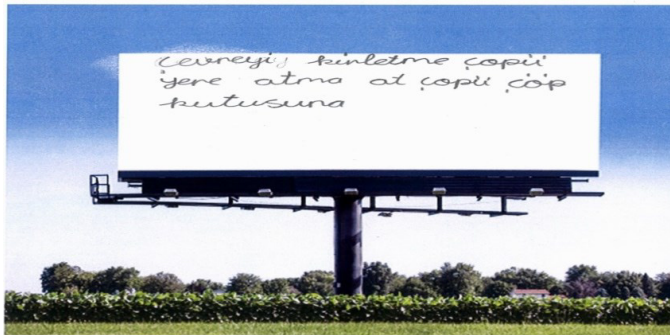 Çevreyi kirletme çöpü
yere atma at çöpü çöp
kutusuna